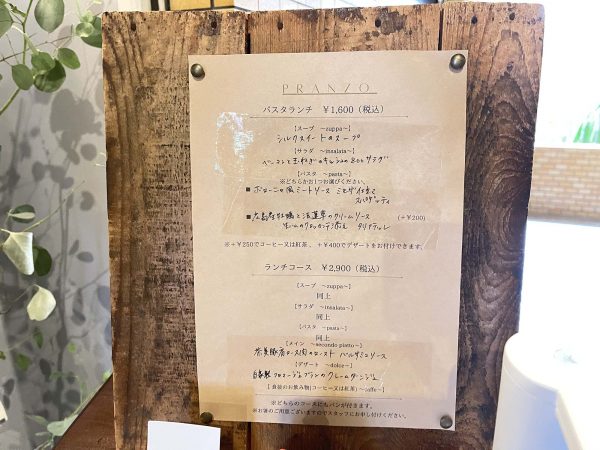 PRANZO
パスタランチ ¥1,600(税込)
【スープ ~zuppa~】
シルクスイートのスープ
【サラダ ~insalata~】
ベーコンと玉ねぎの
サラダ
【パスタ ~pasta~】
※どちらかお1つお選びください。
■ ボローニャ風ミートソース
スパゲッティ
■ 広島産牡蠣と法蓮草のクリームソース (+¥200)
タリアテッレ
※+¥250でコーヒー又は紅茶、+¥400でデザートをお付けできます。
ランチコース ¥2,900(税込)
【スープ ~zuppa~】
同上
【サラダ ~insalata~】
同上
【パスタ ~pasta~】
同上
【メイン ~secondo piatto~】
茶美豚肩ロース肉のロースト バルサミコソース
【デザート ~dolce~】
自家製フロマージュブランのクレームダンジュ
【食後のお飲み物(コーヒー又は紅茶)~caffe~】
※どちらのコースにもパンが付きます。
※お箸のご用意ございますのでスタッフにお申し付けください。